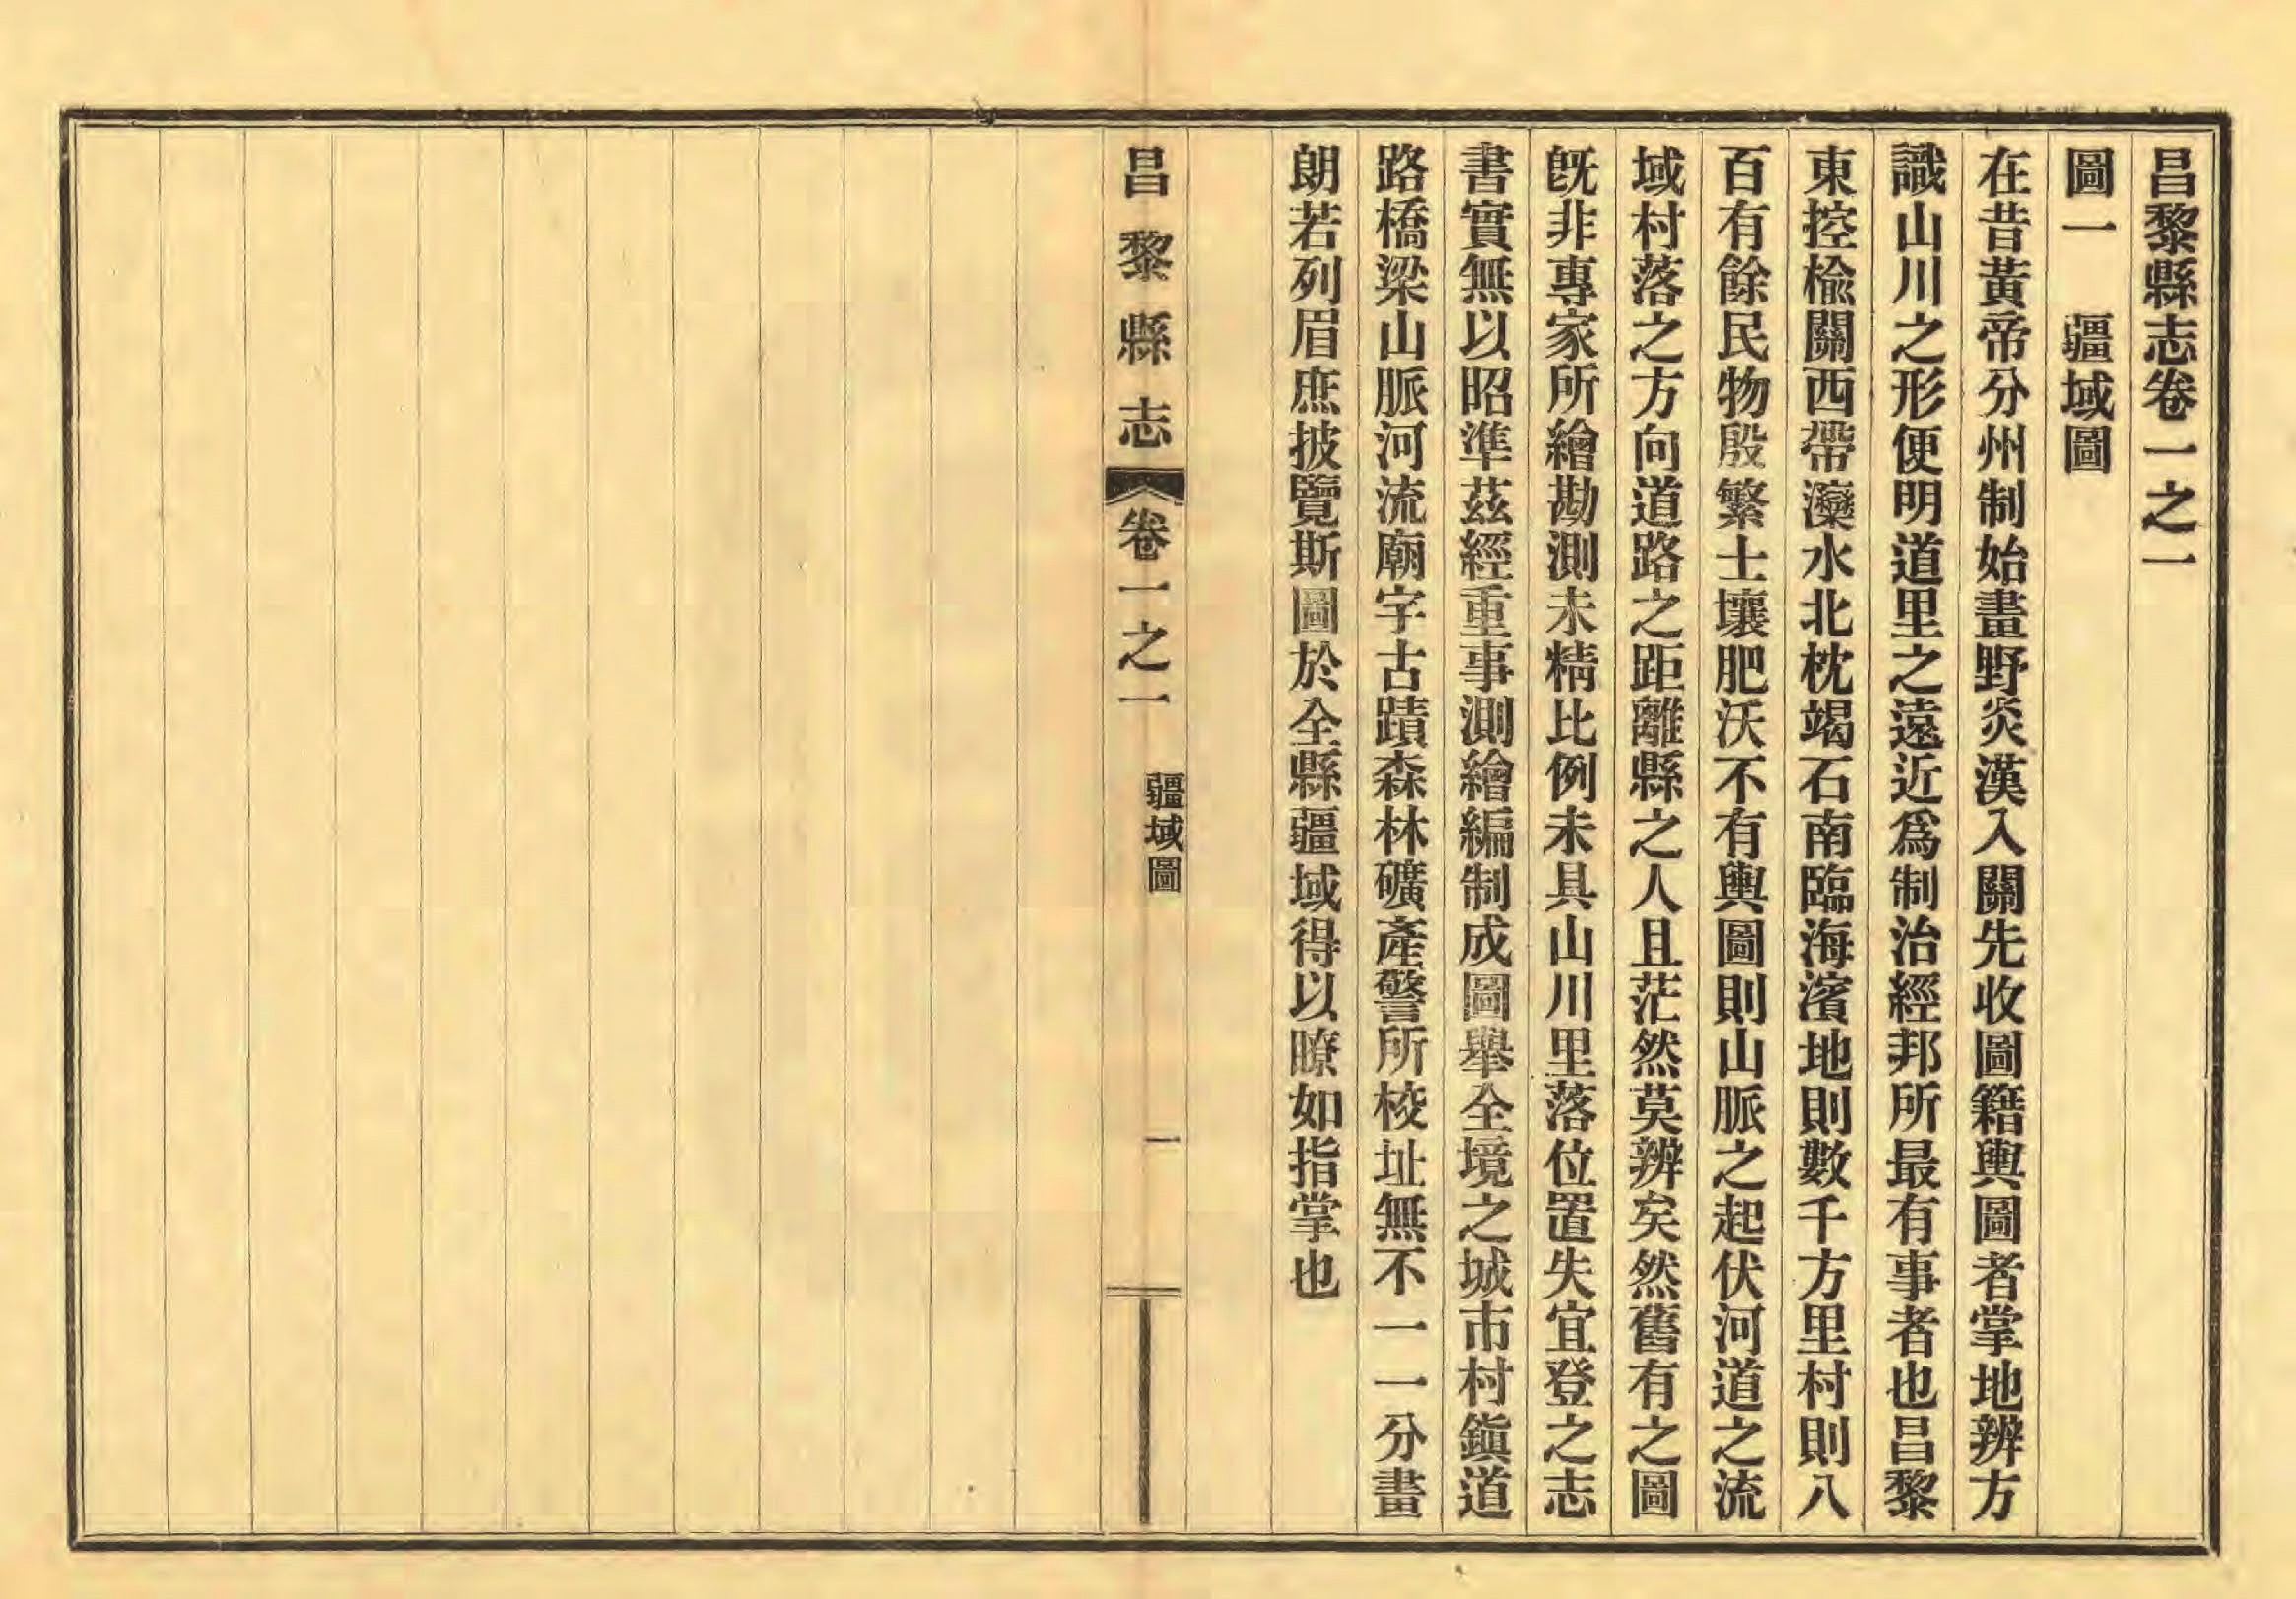 昌黎縣志卷一之一
圖一　疆域圖
在昔黃帝分州制始畫野炎漢入關先收圖籍輿圖者掌地辨方
識山川之形便明道里之遠近爲制治經邦所最有事者也昌黎
東控楡關西帶灤水北枕竭石南臨海濱地則數千方里村則八
百有餘民物殷繁士壤肥沃不有輿圖則山脈之起伏河道之流
域村落之方向道路之距離縣之人且茫然莫辨矣然舊有之圖
旣非專家所繪勘測未精比例未具山川里落位置失宜登之志
書實無以昭準茲經重事測繪編制成圖舉全境之城市村鎭道
路橋梁山脈河流廟宇古蹟森林礦產警所校址無不一一分畫
朗若列眉庶披覽斯圖於全縣疆域得以瞭如指掌也
昌黎縣志　卷一之一　疆域圖　一